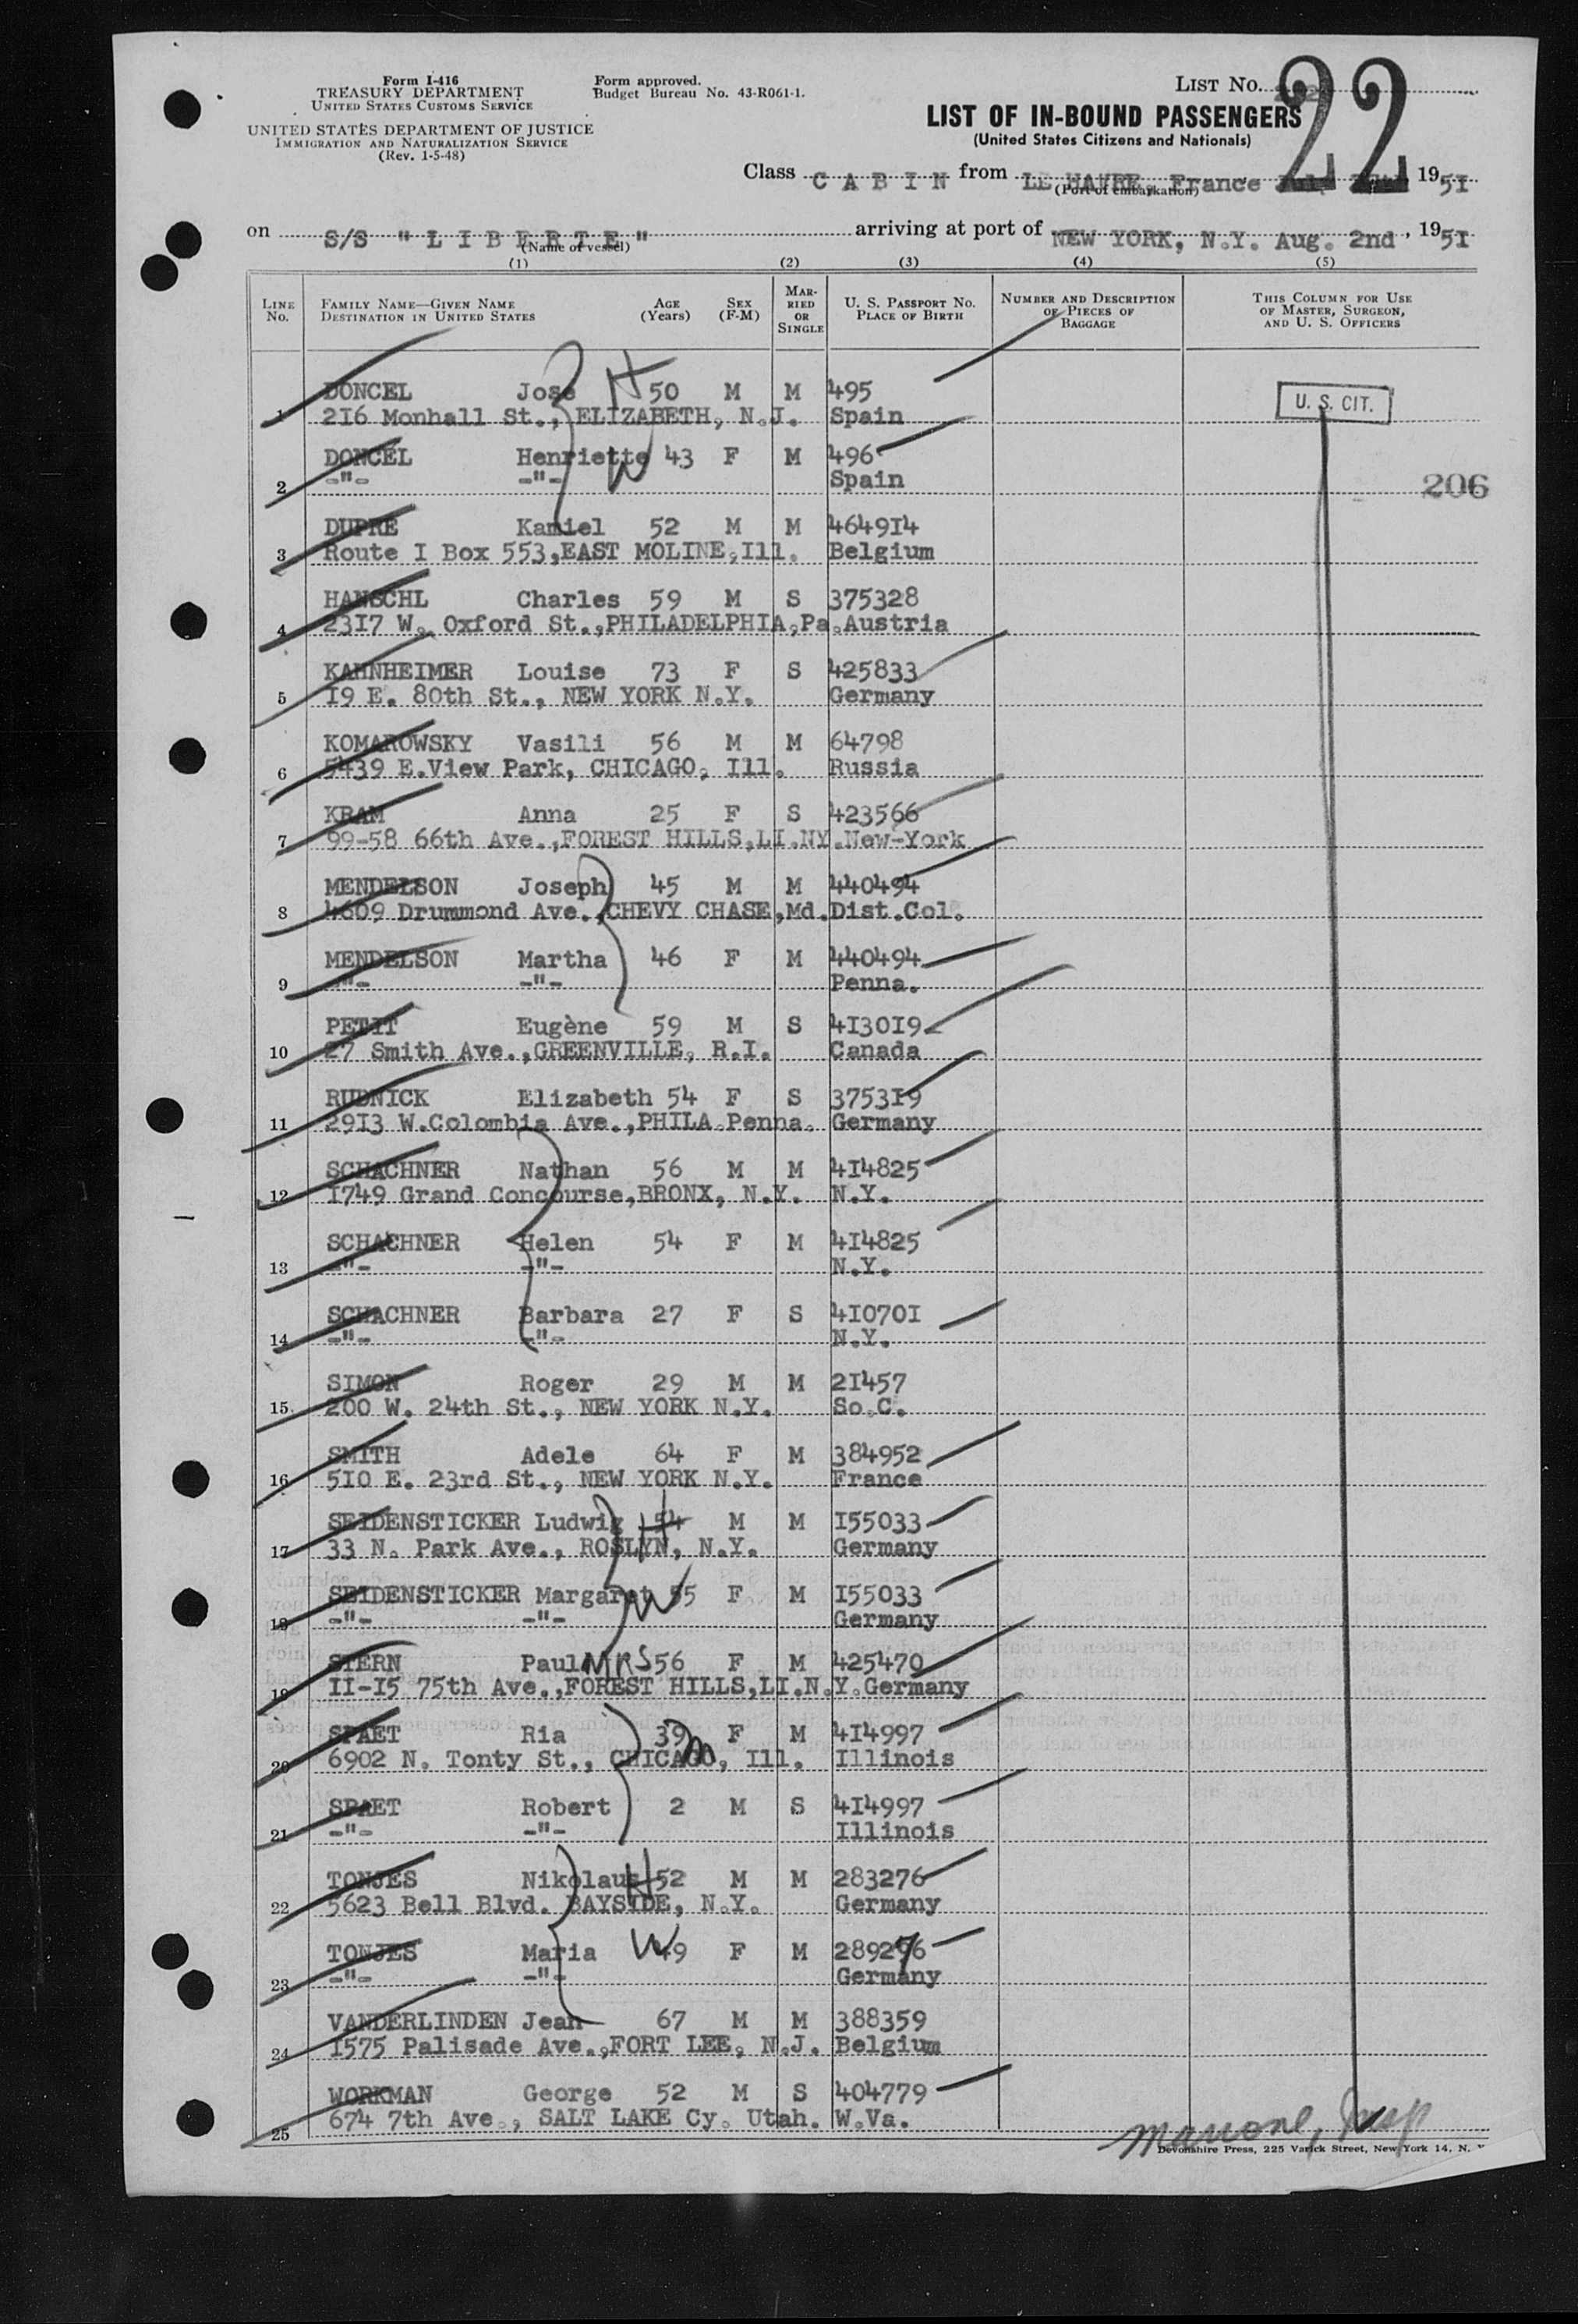 Form I-416
TREASURY DEPARTMENT
UNITED STATES CUSTOMS SERVICE
UNITED STATES DEPARTMENT OF JUSTICE
IMMIGRATION AND NATURALIZATION SERVICE
(Rev. 1-5-48)
Form approved.
Budget Bureau No. 43-R061-1.
LIST NO. 22
LIST OF IN-BOUND PASSENGERS
(United States Citizens and Nationals)
Class CABIN from LE HAVRE, France 1951
(Port of embarkation)
on S/S "LIBERTE" arriving at port of NEW YORK, N.Y. Aug. 2nd, 1951
(Name of vessel)
(1) (2) (3) (4) (5)
LINE NO. FAMILY NAME—GIVEN NAME DESTINATION IN UNITED STATES AGE (Years) SEX (F-M) MARRIED OR SINGLE U. S. PASSPORT NO. PLACE OF BIRTH NUMBER AND DESCRIPTION OF PIECES OF BAGGAGE THIS COLUMN FOR USE OF MASTER, SURGEON, AND U. S. OFFICERS
DONCEL Jose H 50 M M 495
1 216 Monhall St., ELIZABETH, N.J. Spain
U. S. CIT.
DONCEL Henriette W 43 F M 496
2 -"- -"- Spain
206
DUPRE Kamiel 52 M M 464914
3 Route I Box 553,EAST MOLINE,Ill. Belgium
HANSCHL Charles 59 M S 375328
4 2317 W. Oxford St.,PHILADELPHIA,Pa.Austria
KAHNHEIMER Louise 73 F S 425833
5 19 E. 80th St., NEW YORK N.Y. Germany
KOMAROWSKY Vasili 56 M M 64798
6 5439 E.View Park, CHICAGO, Ill. Russia
KRAM Anna 25 F S 423566
7 99-58 66th Ave.,FOREST HILLS,LI.NY.New-York
MENDELSON Joseph 45 M M 440494
8 4609 Drummond Ave.,CHEVY CHASE,Md.Dist.Col.
MENDELSON Martha 46 F M 440494
9 -"- -"- Penna.
PETIT Eugène 59 M S 413019
10 27 Smith Ave.,GREENVILLE, R.I. Canada
RUDNICK Elizabeth 54 F S 375319
11 2913 W.Colombia Ave.,PHILA.Penna. Germany
SCHACHNER Nathan 56 M M 414825
12 1749 Grand Concourse,BRONX, N.Y. N.Y.
SCHACHNER Helen 54 F M 414825
13 -"- -"- N.Y.
SCHACHNER Barbara 27 F S 410701
14 -"- -"- N.Y.
SIMON Roger 29 M M 21457
15 200 W. 24th St., NEW YORK N.Y. So.C.
SMITH Adele 64 F M 384952
16 510 E. 23rd St., NEW YORK N.Y. France
SEIDENSTICKER Ludwig H 54 M M 155033
17 33 N. Park Ave., ROSLYN, N.Y. Germany
SEIDENSTICKER Margaret W 55 F M 155033
18 -"- -"- Germany
STERN Paul MRS 56 F M 425470
19 11-15 75th Ave.,FOREST HILLS,LI.N.Y.Germany
SPAET Ria 39 F M 414997
20 6902 N. Tonty St., CHICAGO, Ill. Illinois
SPAET Robert 2 M S 414997
21 -"- -"- Illinois
TONJES Nikolaus H 52 M M 283276
22 5623 Bell Blvd. BAYSIDE, N.Y. Germany
TONJES Maria W 49 F M 289276
23 -"- -"- Germany
VANDERLINDEN Jean 67 M M 388359
24 1575 Palisade Ave.,FORT LEE, N.J. Belgium
WORKMAN George 52 M S 404779
25 674 7th Ave., SALT LAKE Cy. Utah. W.Va.
Devonshire Press, 225 Varick Street, New York 14, N.